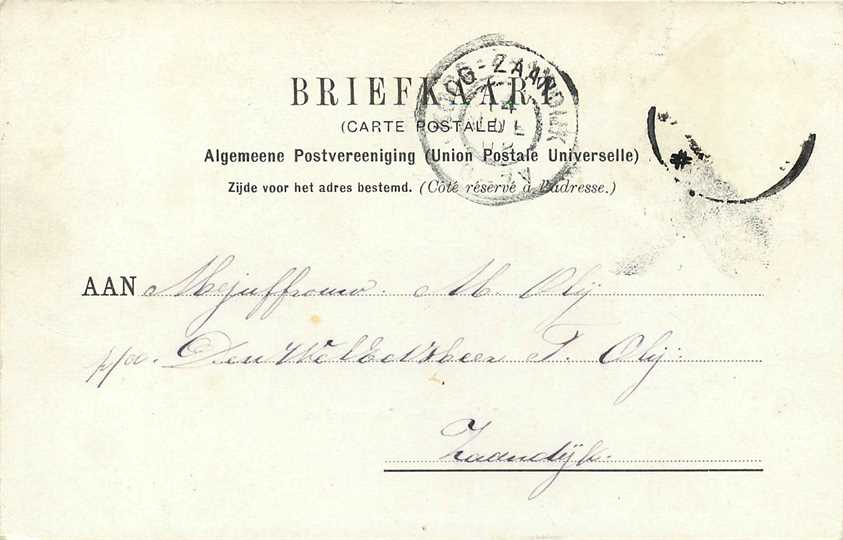 BRIEFKAART
(CARTE POSTALE)
Algemeene Postvereeniging (Union Postale Universelle)
Zijde voor het adres bestemd. (Côté réservé à l'adresse.)
KOOG-ZAANDIJK
14
AAN Mejuffrouw. M. Olij
p/a. Den WelEdelHeer T. Olij.
Zaandijk.